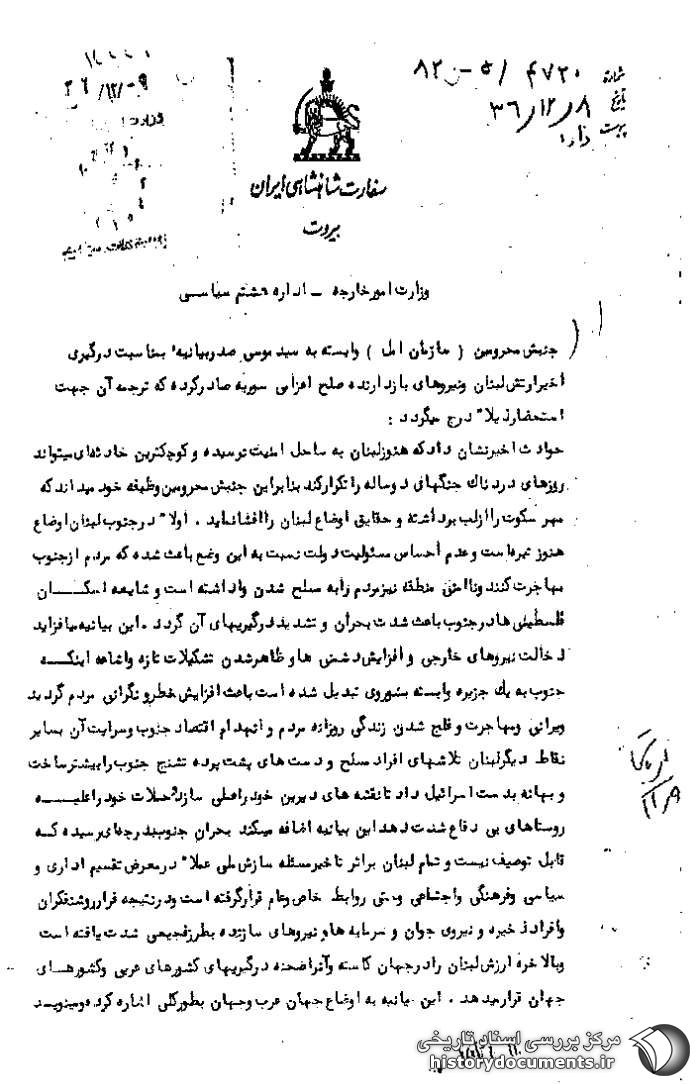 شماره ۴۷۲۰ / ۵ - ز ۸۲
تاریخ ۳۶/۱۲/۸
پیوست دارد
۳۶/۱۲/۰۹
وزارت
سفارت شاهنشاهی ایران
بیروت
وزارت امورخارجه – اداره هشتم سیاسی
جنبش محرومین ( سازمان امل ) وابسته به سید موسی صدر بیانیه‌ بمناسبت درگیری
اخیر ارتش لبنان ونیروهای بازدارنده صلح اعزامی سوریه صادر کرده که ترجمه آن جهت
استحضار ذیلا" درج میگردد :
حوادث اخیر نشان داد که هنوز لبنان به ساحل امنیت نرسیده و کوچکترین حادثه‌ای میتواند
روزهای دردناك جنگهای دوساله را تکرار کند بنابراین جنبش محرومین وظیفه خود میداند که
مهر سکوت را از لب برداشته و حقایق اوضاع لبنان را افشا نماید . اولا" در جنوب لبنان اوضاع
هنوز تیره است و عدم احساس مسئولیت دولت نسبت به این وضع باعث شده که مردم از جنوب
مهاجرت کنند و ناامنی منطقه نیز مردم را به مسلح شدن واداشته است و شایعه اسکــــان
فلسطینی ها در جنوب باعث شدت بحران و تشدید درگیریهای آن گردد . این بیانیه میافزاید
دخالت نیروهای خارجی و افزایش دشمنی ها و ظاهر شدن تشکیلات تازه واشاعه اینکـــه
جنوب به یك جزیره وابسته بشوروی تبدیل شده است باعث افزایش خطر و نگرانی مردم گردید
ویرانی ومهاجرت و فلج شدن زندگی روزانه مردم و انهدام اقتصاد جنوب وسرایت آن بسایر
نقاط دیگر لبنان تلاشهای افراد مسلح و دست های پشت پرده تشنج جنوب را بیشتر ساخت
و بهانه بدست اسرائیل داد تا نقشه های دیرین خود را عملی سازد و حملات خود را علیـــه
روستاهای بی دفاع شدت دهد این بیانیه اضافه میکند بحران جنوب بدرجه‌ای رسیده کــه
قابل توصیف نیست و تمام لبنان براثر تاخیر مسئله سازش ملی عملا" در معرض تقسیم اداری و
سیاسی وفرهنگی واجتماعی وحتی روابط خاص وعام قرار گرفته است ودر نتیجه فرار روشنفکران
وافراد ذخیره و نیروی جوان و سرمایه ها و نیروهای سازنده بطرز فجیعی شدت یافته است
وبالاخره ارزش لبنان را در جهان کاسته وآنرا صحنه درگیریهای کشورهای عربی وکشورهــای
جهان قرار میدهد . این بیانیه به اوضاع جهان عرب وجهان بطور کلی اشاره کرده و مینویســد
مرکز بررسی اسناد تاریخی
historydocuments.ir